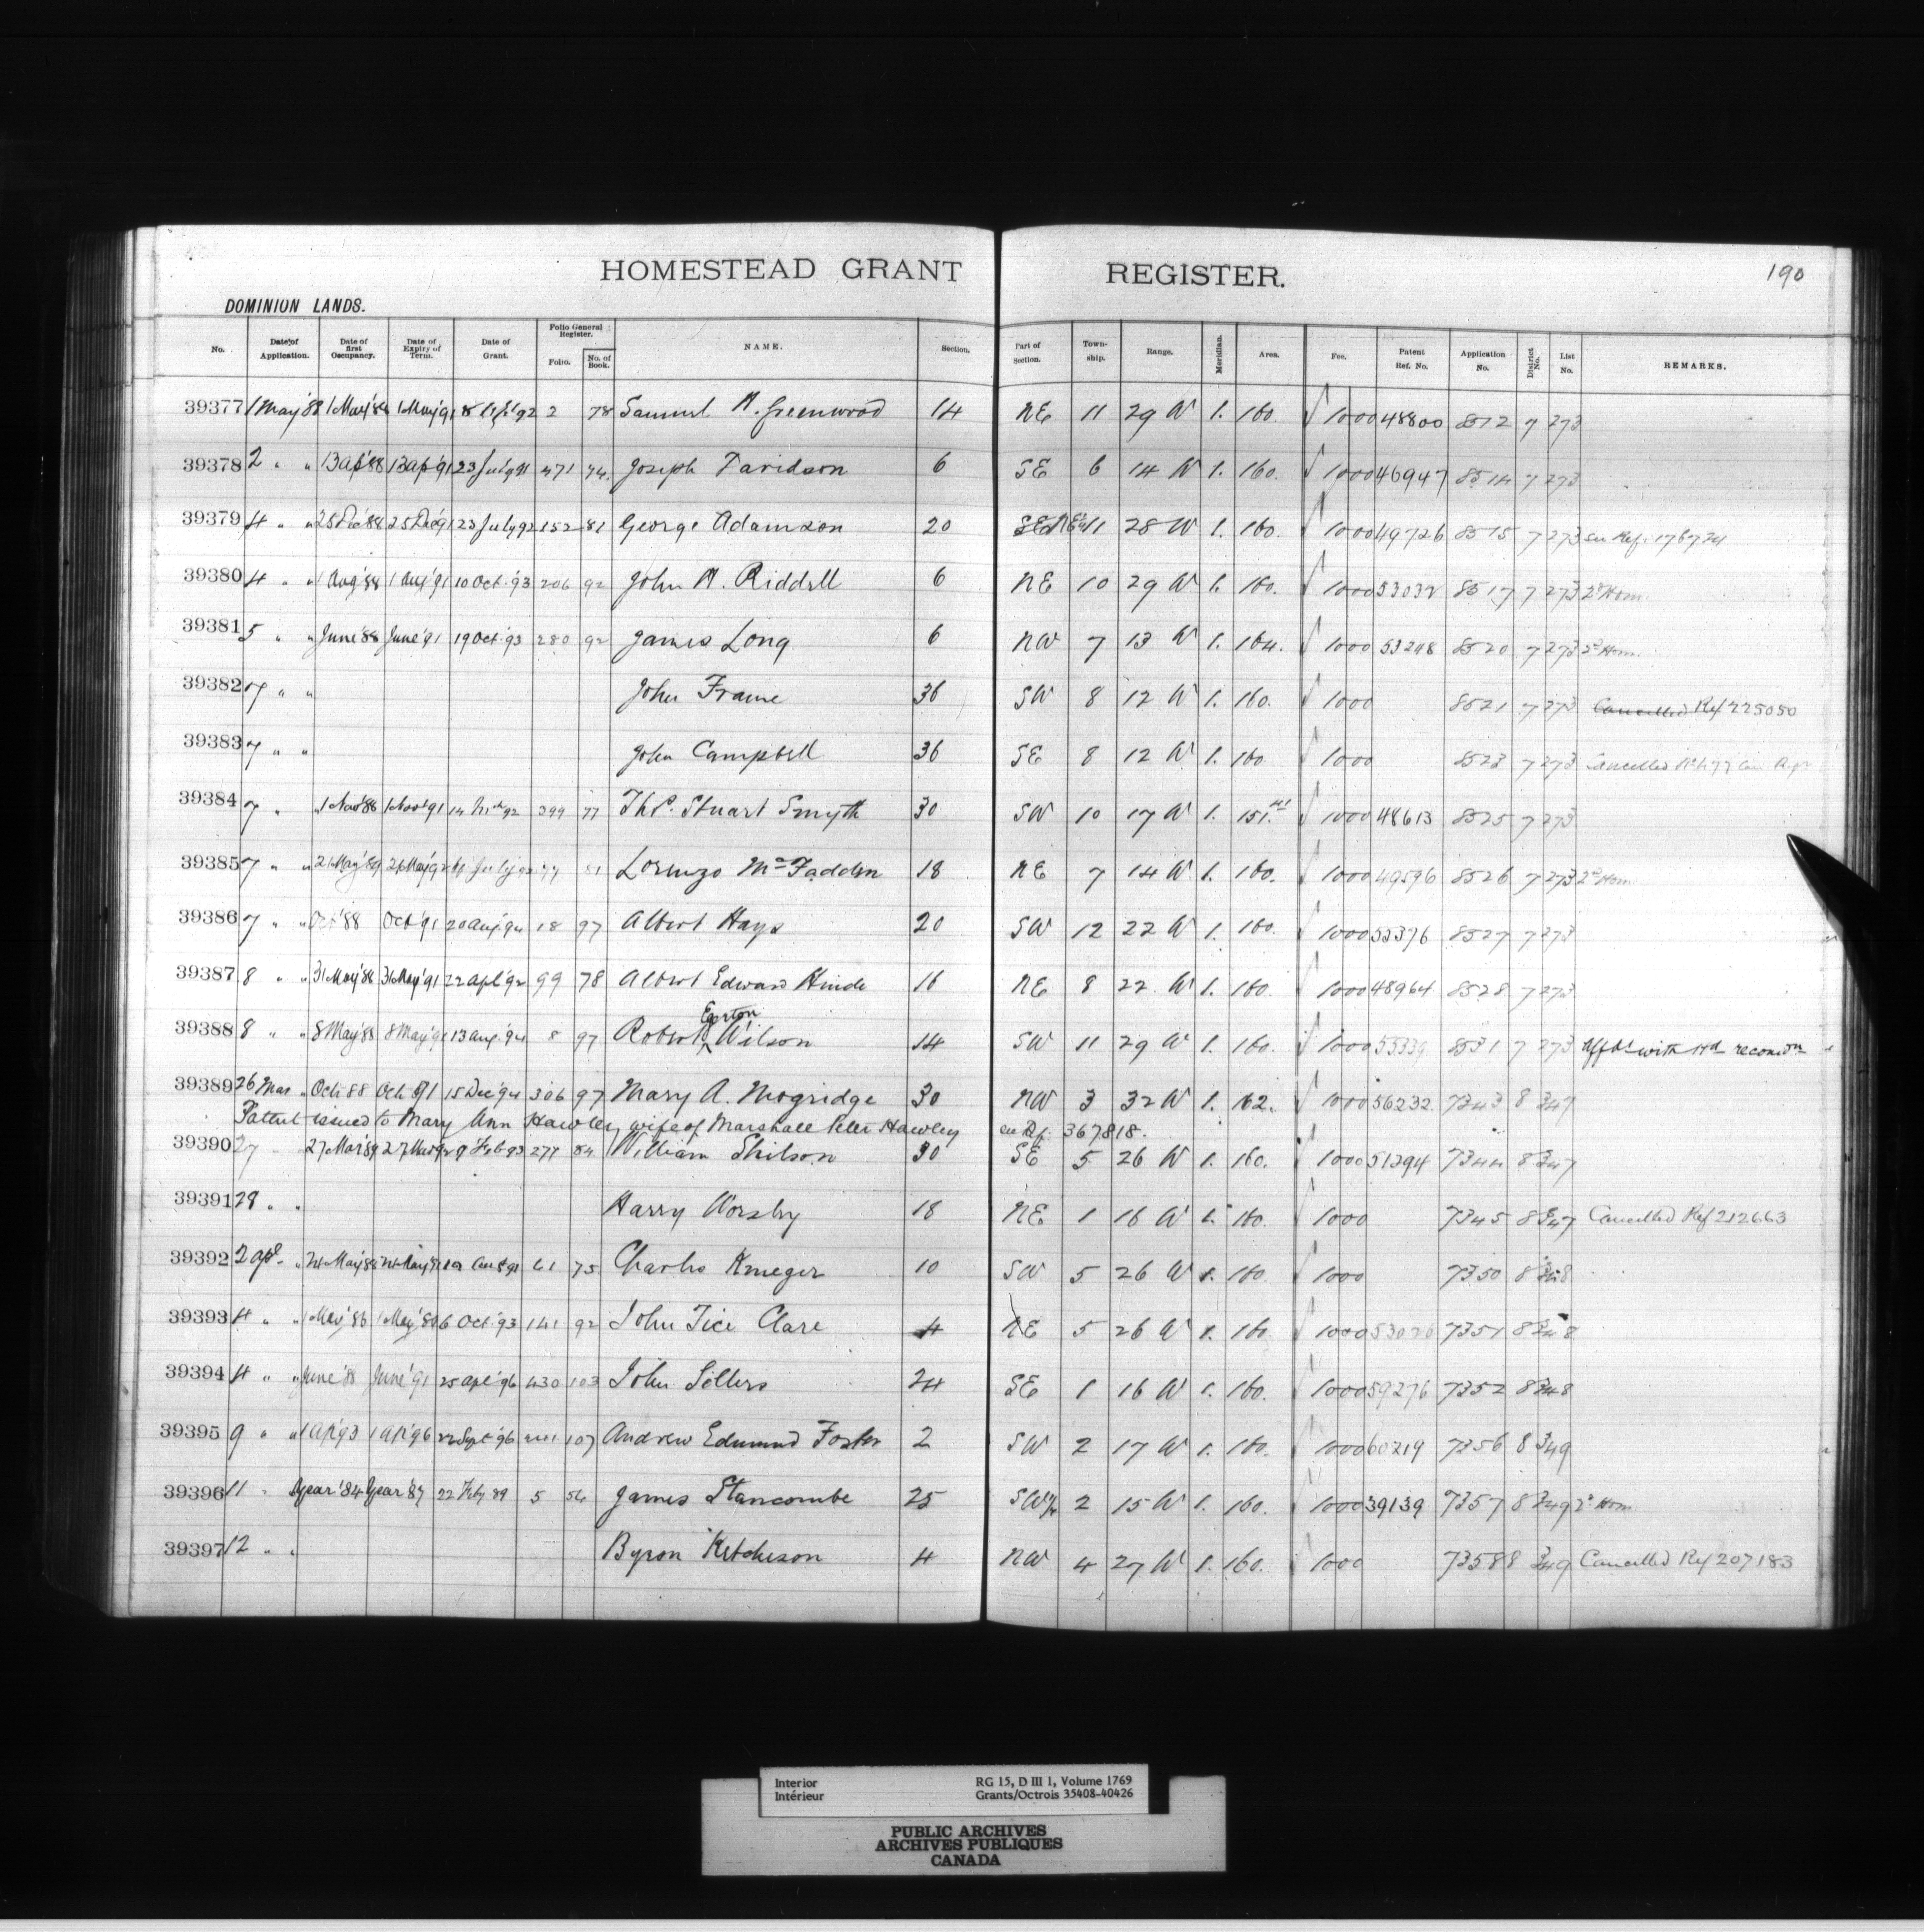 HOMESTEAD GRANT REGISTER.
190
DOMINION LANDS.
No. Date of Application. Date of first Occupancy. Date of Expiry of Term. Date of Grant. Folio General Register. Folio. No. of Book. NAME. Section. Part of Section. Township. Range. Meridian. Area. Fee. Patent Ref. No. Application No. District No. List No. REMARKS.
39377 1 May '88 1 May '88 1 May '91 92 2 78 Samuel A. Greenwood 14 NE 11 29 W 1. 160. 1000 48800 8512 7 273
39378 2 " " 13 Ap '88 13 Ap '91 23 July 91 471 74. Joseph Davidson 6 SE 6 14 W 1. 160. 1000 46947 8514 7 273
39379 4 " " 25 Dec '88 25 Dec '91 23 July 92 152 81 George Adamson 20 11 28 W 1. 160. 1000 49726 8515 7 273 See Ref. 176724
39380 4 " " 1 Aug '88 1 Aug '91 10 Oct. '93 206 92 John A. Riddell 6 NE 10 29 W 1. 160. 1000 53032 8517 7 273 2d Hom.
39381 5 " " June '88 June '91 19 Oct. '93 280 92 James Long 6 NW 7 13 W 1. 164. 1000 53248 8520 7 273 2d Hom.
39382 7 " " John Frame 36 SW 8 12 W 1. 160. 1000 8521 7 273 Cancelled Ref 225050
39383 7 " " John Campbell 36 SE 8 12 W 1. 160 1000 8523 7 273 Cancelled
39384 7 " " 1 Nov '88 1 Nov '91 14 Mch 92 399 77 Thos. Stuart Smyth 30 SW 10 17 W 1. 151. 1000 48613 8525 7 273
39385 7 " " 26 May '89 26 May '92 July 92 81 Lorenzo McFadden 18 NE 7 14 W 1. 160. 1000 49596 8526 7 273 2d Hom
39386 7 " " Oct '88 Oct '91 20 Aug '94 18 97 Albert Hays 20 SW 12 22 W 1. 160. 1000 55376 8527 7 273
39387 8 " " 31 May '88 31 May '91 22 Apl '92 99 78 Albert Edward Hinde 16 NE 8 22 W 1. 160. 1000 48964 8528 7 273
39388 8 " " 8 May '88 8 May '91 13 Aug. '94 8 97 Robert Egerton Wilson 14 SW 11 29 W 1. 160. 1000 55339 8531 7 273 with Hd recom
39389 26 Mar " Oct 88 Oct 91 15 Dec '94 306 97 Mary A. Mogridge 30 NW 3 32 W 1. 162. 1000 56232 7343 8 347
Patent issued to Mary Ann Hawley wife of Marshall Peter Hawley see Rf. 367818.
39390 27 27 Mar '89 27 Mar '92 9 Feb 93 277 84 William Shilson 30 SE 5 26 W 1. 160. 1000 51394 7344 8 347
39391 29 " " Harry Worsley 18 NE 1 16 W 1. 160. 1000 7345 8 347 Cancelled Ref 212663
39392 2 Apl " 24 May '88 24 May '91 61 75 Charles Krueger 10 SW 5 26 W 1. 160 1000 7350 8 348
39393 4 " " 1 May '86 1 May '89 6 Oct. '93 141 92 John Tice Clare 4 NE 5 26 W 1. 160 1000 53026 7351 8 348
39394 4 " " June '88 June '91 25 Apl '96 430 103 John Sellers 24 SE 1 16 W 1. 160. 1000 59276 7352 8 348
39395 9 " " 1 Ap '93 1 Ap '96 22 Sept '96 107 Andrew Edmund Foster 2 SW 2 17 W 1. 160. 1000 60219 7356 8 349
39396 11 " year '84 year '87 22 Feby 89 5 54 James Stancombe 25 SW¼ 2 15 W 1. 160. 1000 39139 7357 8 349 2d Hom
39397 12 " " Byron Ketcheson 4 NW 4 27 W 1. 160. 1000 7358 8 349 Cancelled Ref 207183
Interior RG 15, D III 1, Volume 1769
Intérieur Grants/Octrois 35408-40426
PUBLIC ARCHIVES
ARCHIVES PUBLIQUES
CANADA